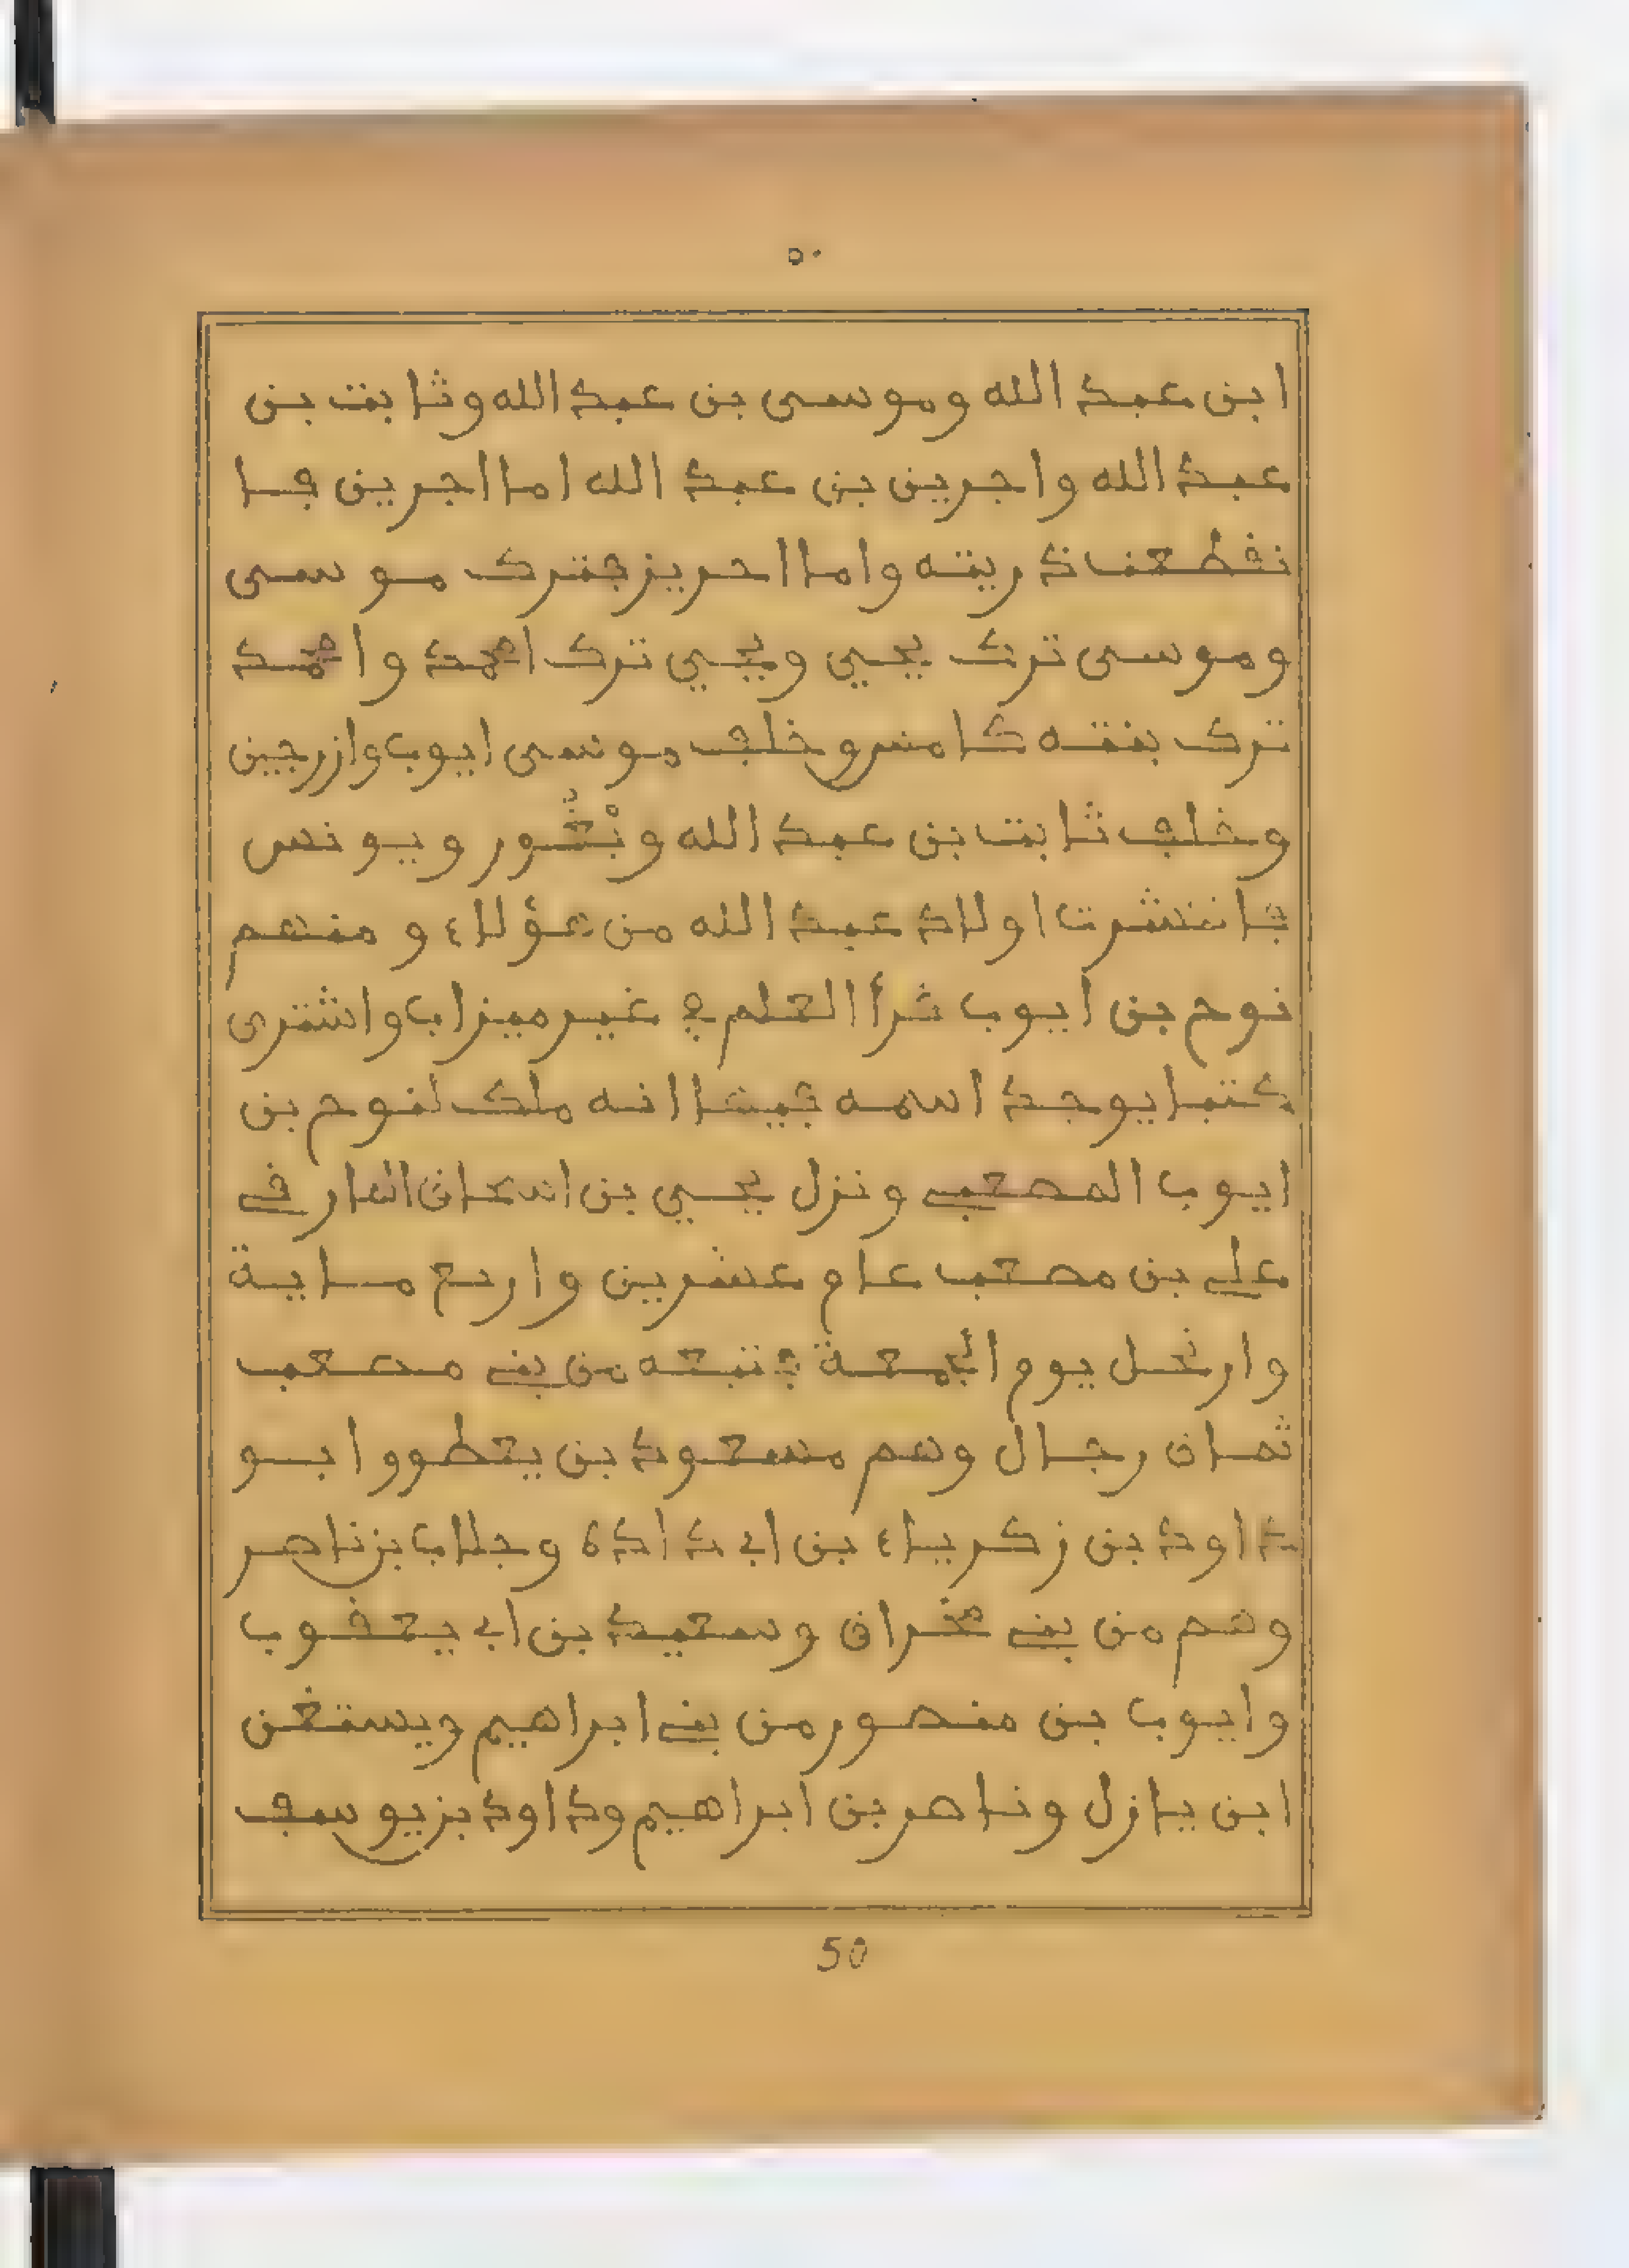 ٥٠
ابن عبد الله وموسى بن عبد الله وثابت بن
عبد الله واجرين بن عبد الله اما اجرين فا
نقطعت ذريته واما احريز فترك موسى
وموسى ترك يحيي ويحيي ترك احمد واحمد
ترك بنته كامس وخلف موسى ايوب وازرجين
وخلف ثابت بن عبد الله ويثور ويونس
فانتشرت اولاد عبد الله من هؤلاء ومنهم
نوح بن ايوب قرأ العلم في غير ميزاب واشترى
كتبا يوجد اسمه فيها انه ملك لنوح بن
ايوب المصعبي ونزل يحيي بن اسحاق الدار في
علي بن مصعب عام عشرين واربع ماية
وارتحل يوم الجمعة فتبعه من بني مصعب
ثمان رجال وهم مسعود بن يعطوو ابو
داود بن زكرياء بن ابي دادة وجلاب بن ناصر
وهم من بني خفران وسعيد بن ابي يعقوب
وايوب بن منصور من بني ابراهيم ويستغن
ابن يازل وناصر بن ابراهيم وداود بن يوسف
50